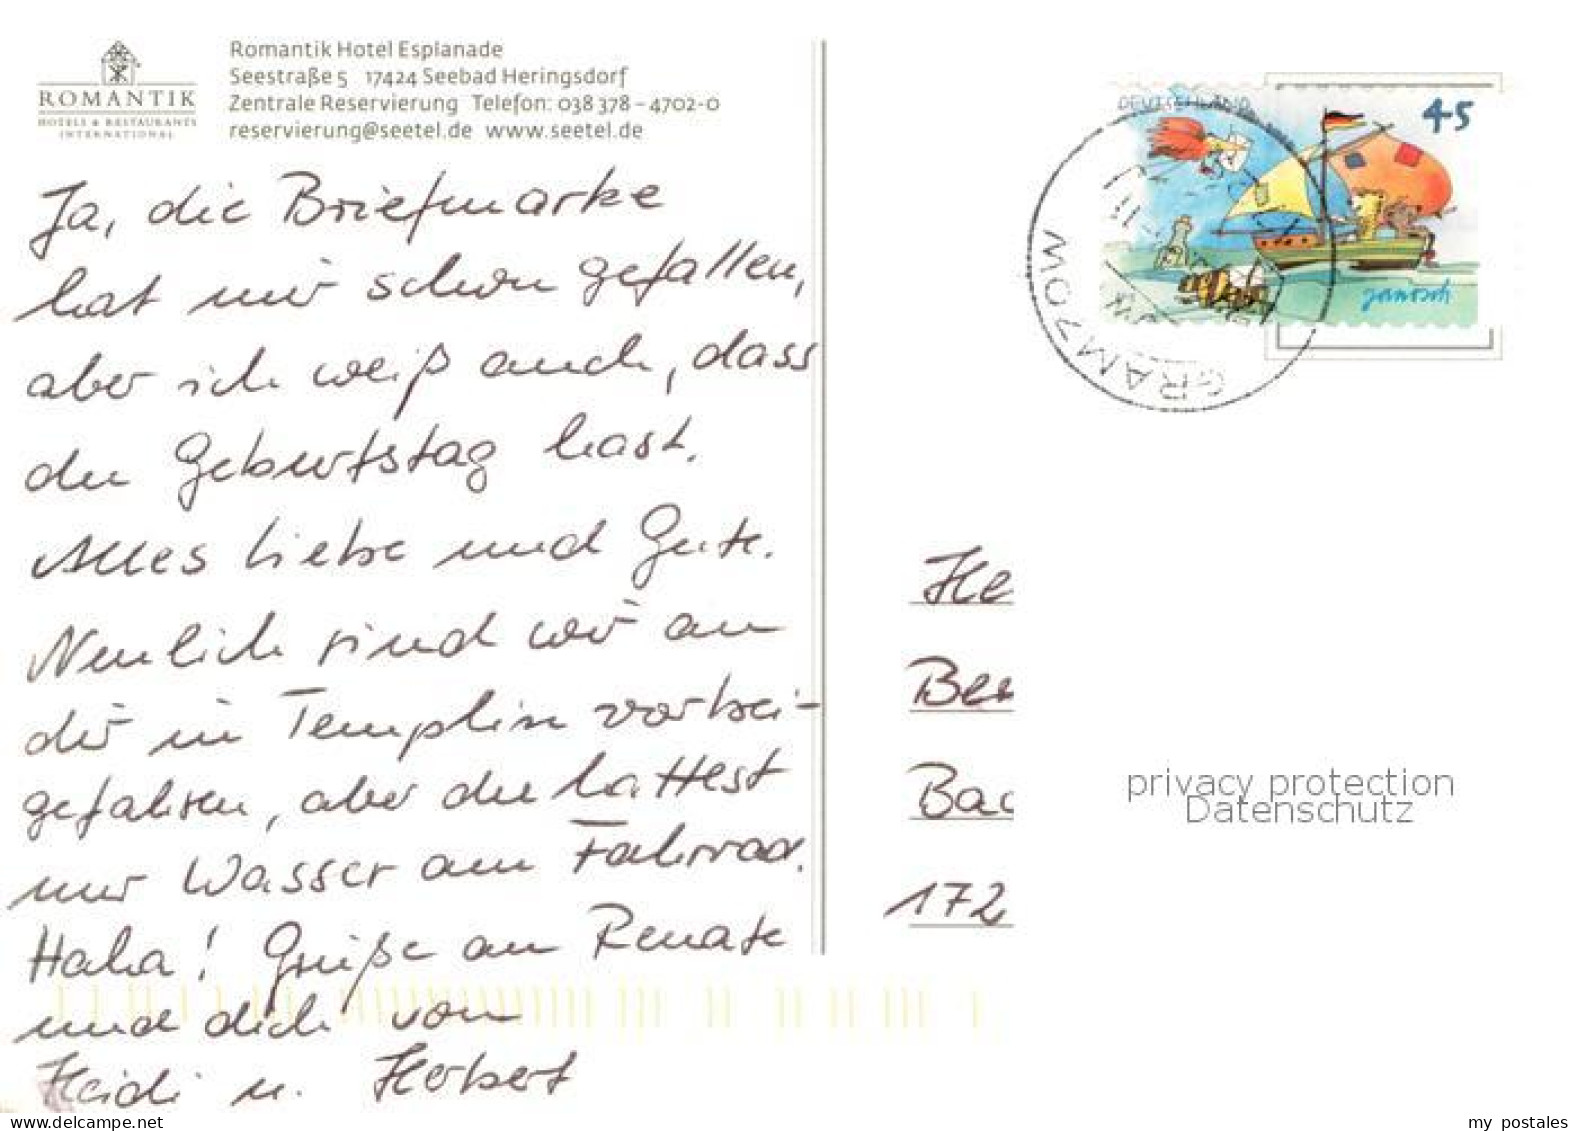 Romantik Hotel Esplanade
Seestraße 5 17424 Seebad Heringsdorf
Zentrale Reservierung Telefon: 038 378 – 4702-0
reservierung@seetel.de www.seetel.de
ROMANTIK
HOTELS & RESTAURANTS
INTERNATIONAL
Ja, die Briefmarke
hat mir schon gefallen,
aber ich weiß auch, dass
du Geburtstag hast.
Alles Liebe und Gute.
Neulich sind wir an
dir in Templin vorbei-
gefahren, aber du hattest
nur Wasser am Fahrrad.
Haha! Grüße an Renate
und dich von
Heidi u. Herbert
DEUTSCHLAND
45
janosch
GRAMZOW
He
Ber
Bac
172
privacy protection
Datenschutz
www.delcampe.net
my postales